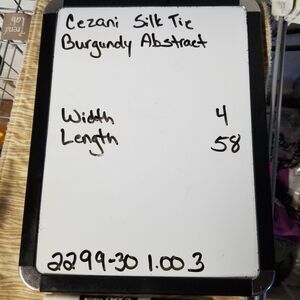 Cezani Silk Tie
Burgundy Abstract
Width 4
Length 58
2299-30 1.00 3